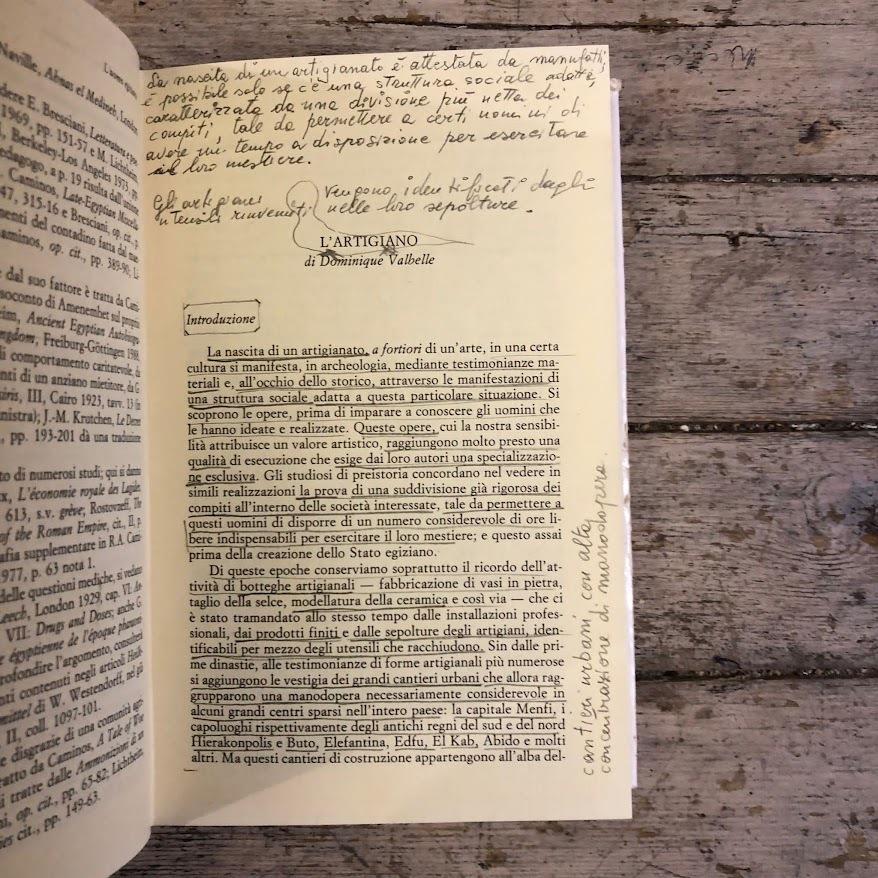 L'uomo egiziano
Naville, Ahnas el Medineh, London
dere E. Bresciani, Letteratura e poe-
1969, pp. 151-57 e M. Lichtheim,
Berkeley-Los Angeles 1973, pp.
edagogo, a p. 19 risulta dall'unione
Caminos, Late-Egyptian Miscella-
47, 315-16 e Bresciani, op. cit., p.
menti del contadino fatta dal mae-
aminos, op. cit., pp. 389-90; Li-
dal suo fattore è tratta da Cami-
soconto di Amenemhet sul proprio
heim, Ancient Egyptian Autobiogra-
ngdom, Freiburg-Göttingen 1988,
li comportamento caritatevole, da
nti di un anziano mietitore, da G.
siris, III, Cairo 1923, tavv. 13 (in
nistra); J.-M. Krutchen, Le Decret
, pp. 193-201 dà una traduzione
to di numerosi studi; qui si danno
x, L'économie royale des Lagides,
613, s.v. grêve; Rostovzeff, The
of the Roman Empire, cit., II, p.
afia supplementare in R.A. Cami-
977, p. 63 nota 1.
delle questioni mediche, si vedano
Leech, London 1929, cap. VI: An-
VII: Drugs and Doses; anche G.
e égyptienne de l'époque pharaoni-
profondire l'argomento, consulterà
nti contenuti negli articoli Heilk-
mittel di W. Westendorff, nel già
II, coll. 1097-101.
e disgrazie di una comunità agri-
ratto da Caminos, A Tale of Woe
i tratte dalle Ammonizioni di un
ni, op. cit., pp. 65-82; Lichtheim,
ies cit., pp. 149-63.
La nascita di un artigianato è attestata da manufatti,
è possibile solo se c'è una struttura sociale adatta,
caratterizzata da una divisione più netta dei
compiti, tale da permettere a certi uomini di
avere un tempo a disposizione per esercitare
il loro mestiere.
Gli artigiani vengono identificati dagli
utensili rinvenuti nelle loro sepolture.
L'ARTIGIANO
di Dominique Valbelle
Introduzione
La nascita di un artigianato, a fortiori di un'arte, in una certa
cultura si manifesta, in archeologia, mediante testimonianze ma-
teriali e, all'occhio dello storico, attraverso le manifestazioni di
una struttura sociale adatta a questa particolare situazione. Si
scoprono le opere, prima di imparare a conoscere gli uomini che
le hanno ideate e realizzate. Queste opere, cui la nostra sensibi-
lità attribuisce un valore artistico, raggiungono molto presto una
qualità di esecuzione che esige dai loro autori una specializzazio-
ne esclusiva. Gli studiosi di preistoria concordano nel vedere in
simili realizzazioni la prova di una suddivisione già rigorosa dei
compiti all'interno delle società interessate, tale da permettere a
questi uomini di disporre di un numero considerevole di ore li-
bere indispensabili per esercitare il loro mestiere; e questo assai
prima della creazione dello Stato egiziano.
Di queste epoche conserviamo soprattutto il ricordo dell'at-
tività di botteghe artigianali — fabbricazione di vasi in pietra,
taglio della selce, modellatura della ceramica e così via — che ci
è stato tramandato allo stesso tempo dalle installazioni profes-
sionali, dai prodotti finiti e dalle sepolture degli artigiani, iden-
tificabili per mezzo degli utensili che racchiudono. Sin dalle pri-
me dinastie, alle testimonianze di forme artigianali più numerose
si aggiungono le vestigia dei grandi cantieri urbani che allora rag-
grupparono una manodopera necessariamente considerevole in
alcuni grandi centri sparsi nell'intero paese: la capitale Menfi, i
capoluoghi rispettivamente degli antichi regni del sud e del nord
Hierakonpolis e Buto, Elefantina, Edfu, El Kab, Abido e molti
altri. Ma questi cantieri di costruzione appartengono all'alba del-
cantieri urbani con alta
concentrazione di manodopera.